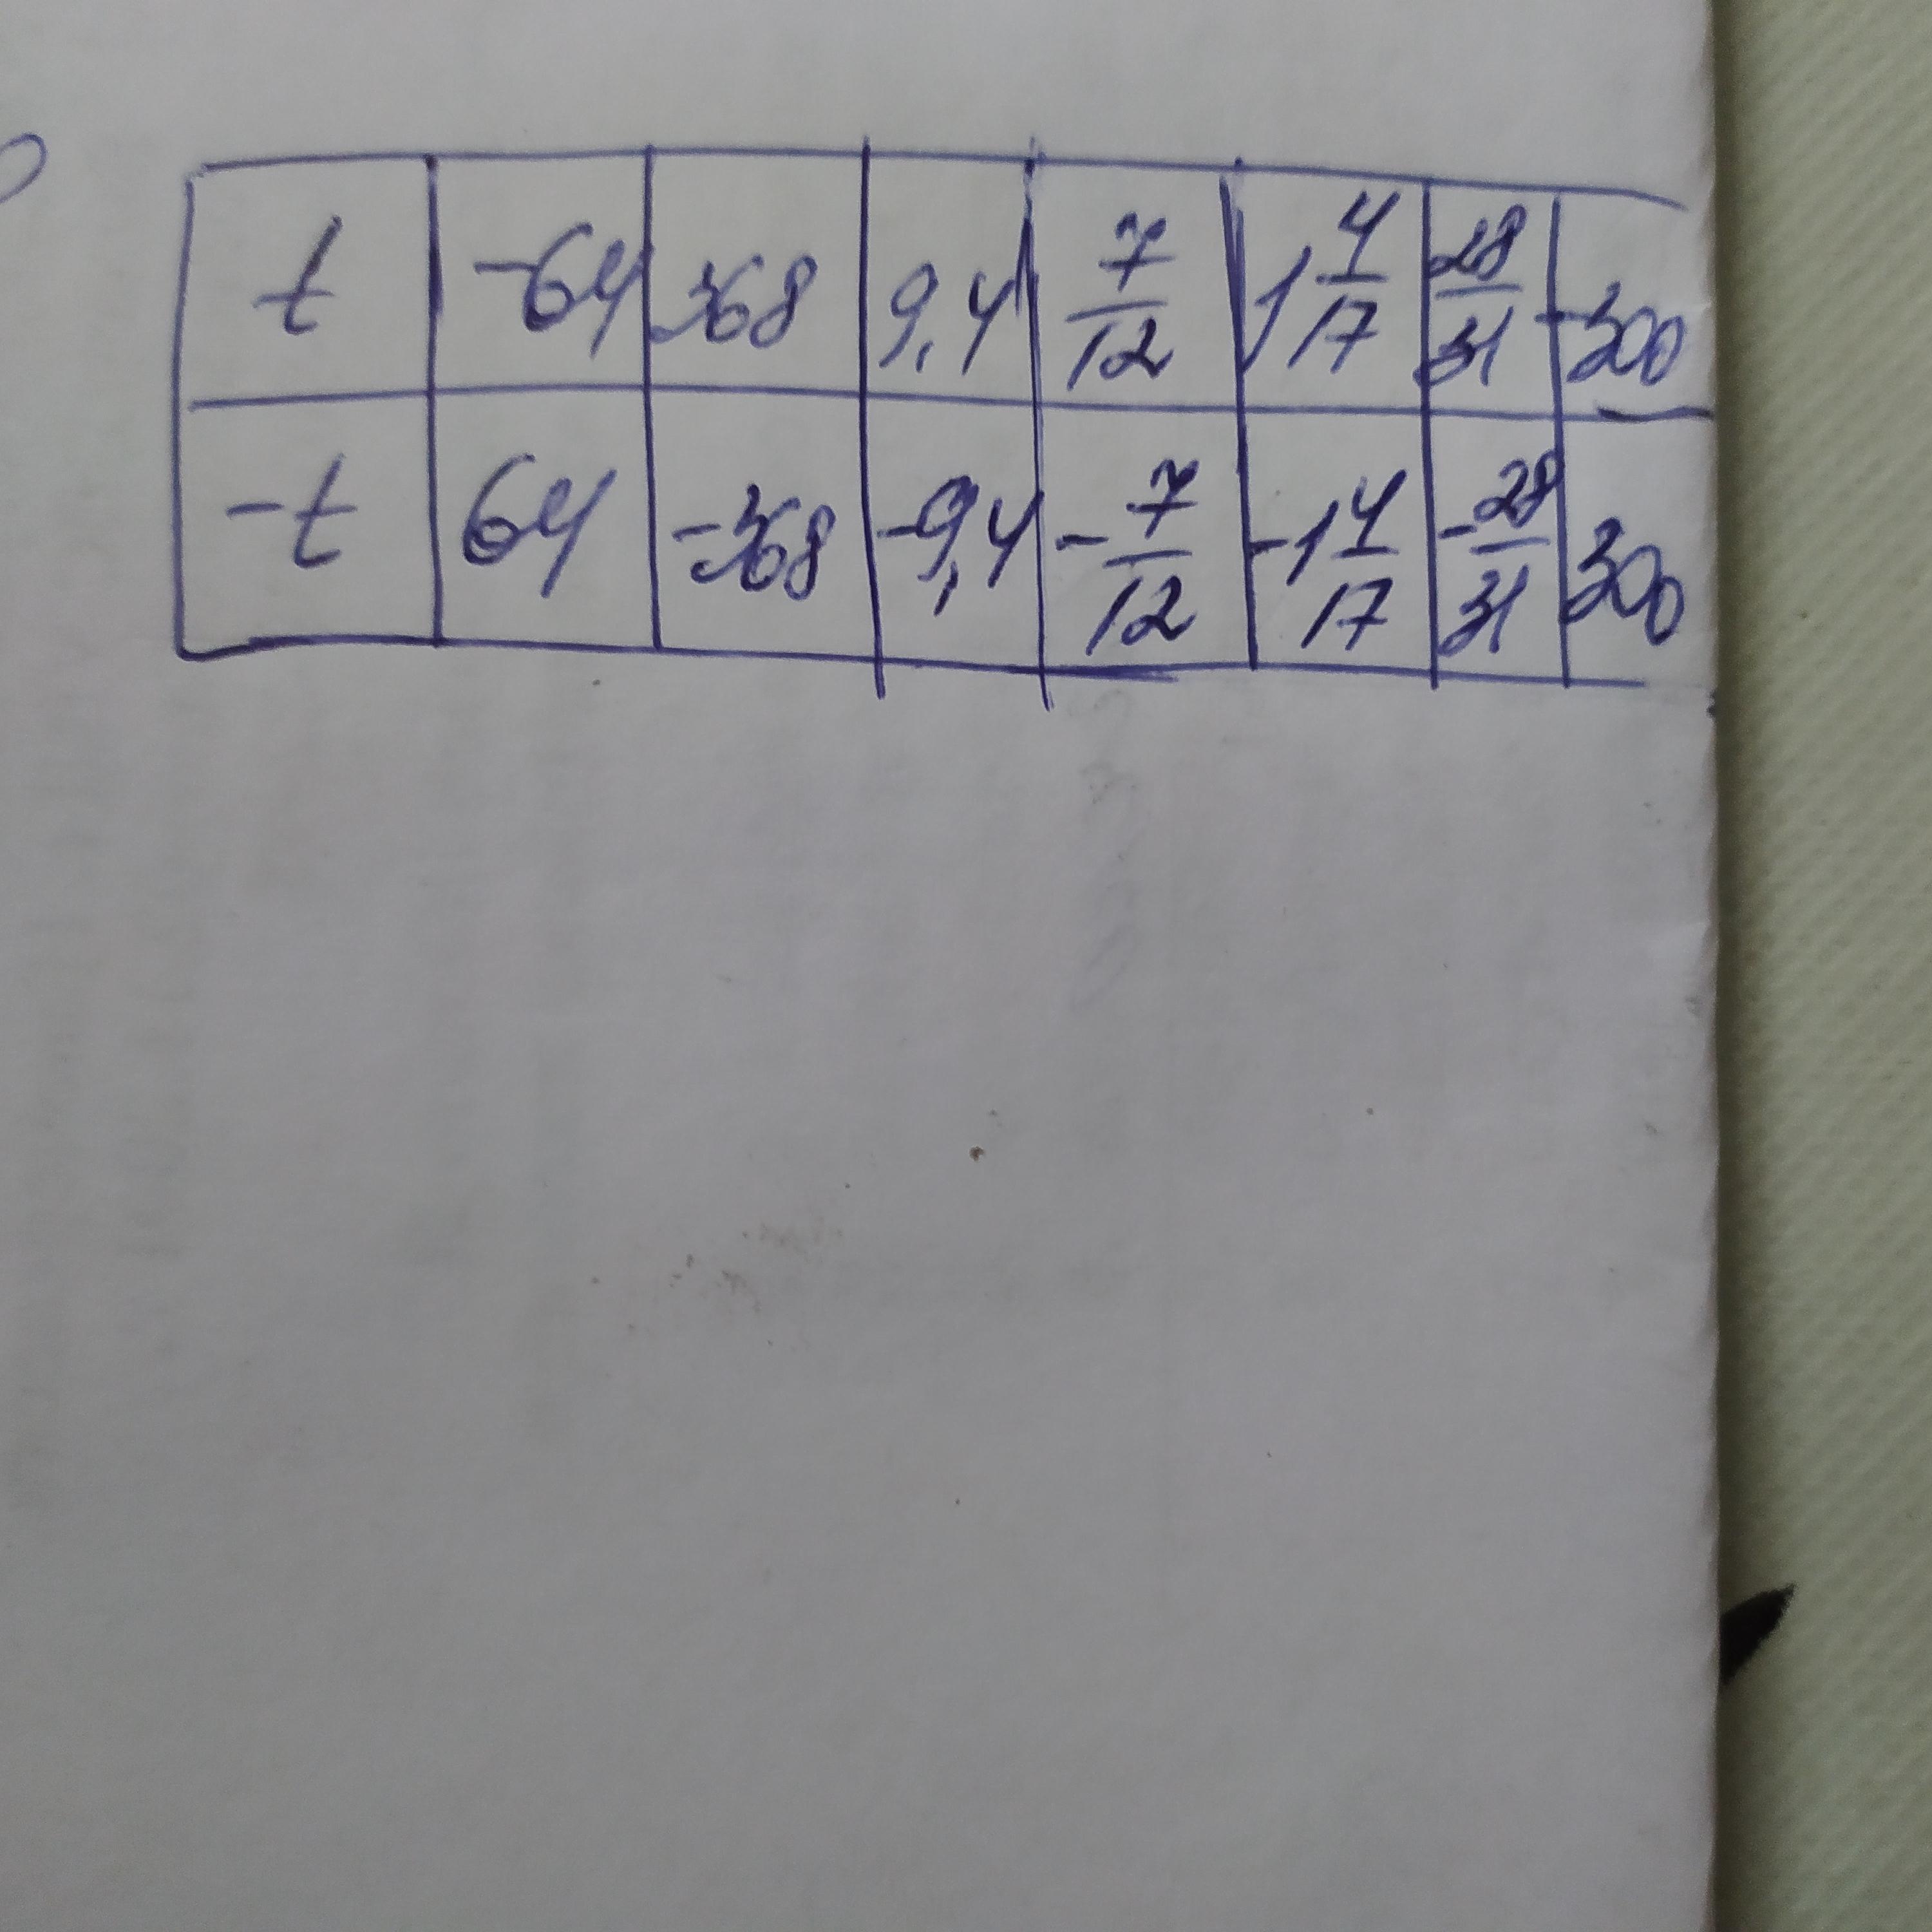 t -64 368 9,4 7/12 1 4/17 28/31 -300
-t 64 -368 -9,4 -7/12 -1 4/17 -28/31 300